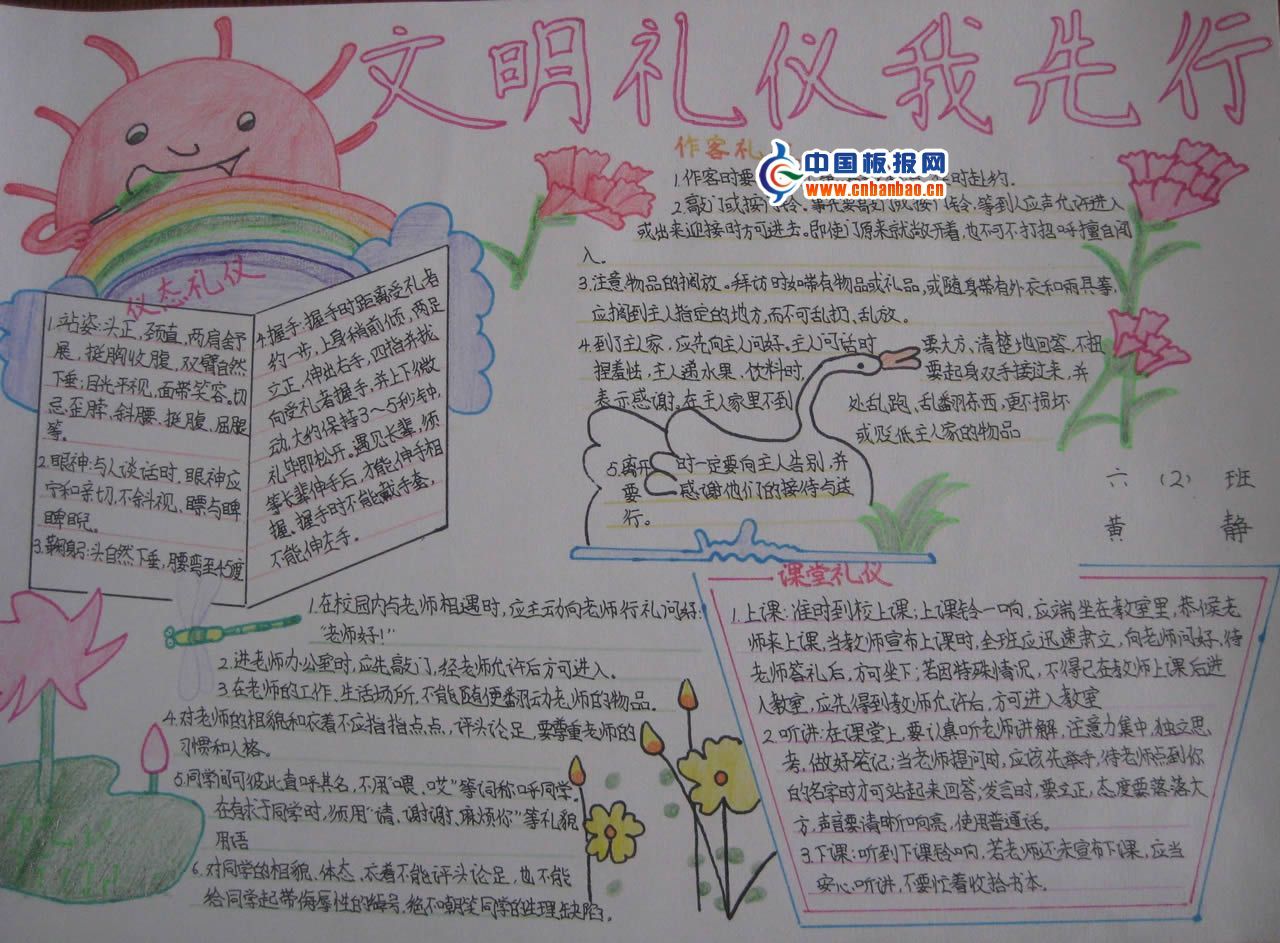 文明礼仪我先行
作客礼
中国板报网
www.cnbanbao.cn
1.作客时要
时赴约.
2.敲门或按门铃。事先要敲门或按门铃,等到人应声允许进入
或出来迎接时方可进去。即使门原来就敞开着,也不可不打招呼擅自闯
入。
3.注意物品的搁放。拜访时如带有物品或礼品,或随身带有外衣和雨具等,
应搁到主人指定的地方,而不可乱扔、乱放。
4.到了主人家,应先向主人问好。主人问话时要大方、清楚地回答,不扭
捏羞怯,主人递水果、饮料时要起身双手接过来,并
表示感谢。在主人家里不到处乱跑、乱翻东西,更不损坏
或贬低主人家的物品
5.离开时一定要向主人告别,并
要感谢他们的接待与送
行。
六(2)班
黄静
仪态礼仪
1.站姿:头正,颈直,两肩舒
展,挺胸收腹,双臂自然
下垂;目光平视,面带笑容。切
忌歪脖、斜腰、挺腹、屈腿
等。
2.眼神:与人谈话时,眼神应
宁和亲切,不斜视、瞟与睥
睥睨。
3.鞠躬:头自然下垂,腰弯至45度
4.握手:握手时距离受礼者
约一步,上身稍前倾,两足
立正,伸出右手,四指并拢
向受礼者握手,并上下微
动,大约保持3~5秒钟,
礼毕即松开。遇见长辈,须
等长辈伸手后,才能伸手相
握。握手时不能戴手套,
不能伸左手。
1.在校园内与老师相遇时,应主动向老师行礼问好:
“老师好!”
2.进老师办公室时,应先敲门,经老师允许后方可进入。
3.在老师的工作、生活场所,不能随便翻动老师的物品.
4.对老师的相貌和衣着不应指指点点,评头论足,要尊重老师的
习惯和人格。
5.同学间可彼此直呼其名,不用“喂、哎”等词称呼同学。
在有求于同学时,须用“请、谢谢、麻烦你”等礼貌
用语
6.对同学的相貌、体态、衣着不能评头论足,也不能
给同学起带侮辱性的绰号,绝不嘲笑同学的生理缺陷。
课堂礼仪
1.上课:准时到校上课;上课铃一响,应端坐在教室里,恭候老
师来上课,当教师宣布上课时,全班应迅速肃立,向老师问好,待
老师答礼后,方可坐下;若因特殊情况,不得已在教师上课后进
入教室,应先得到教师允许后,方可进入教室
2.听讲:在课堂上,要认真听老师讲解,注意力集中,独立思
考,做好笔记;当老师提问时,应该先举手,待老师点到你
的名字时才可站起来回答;发言时,要立正,态度要落落大
方,声音要清晰响亮,使用普通话。
3.下课:听到下课铃响,若老师还未宣布下课,应当
安心听讲,不要忙着收拾书本.